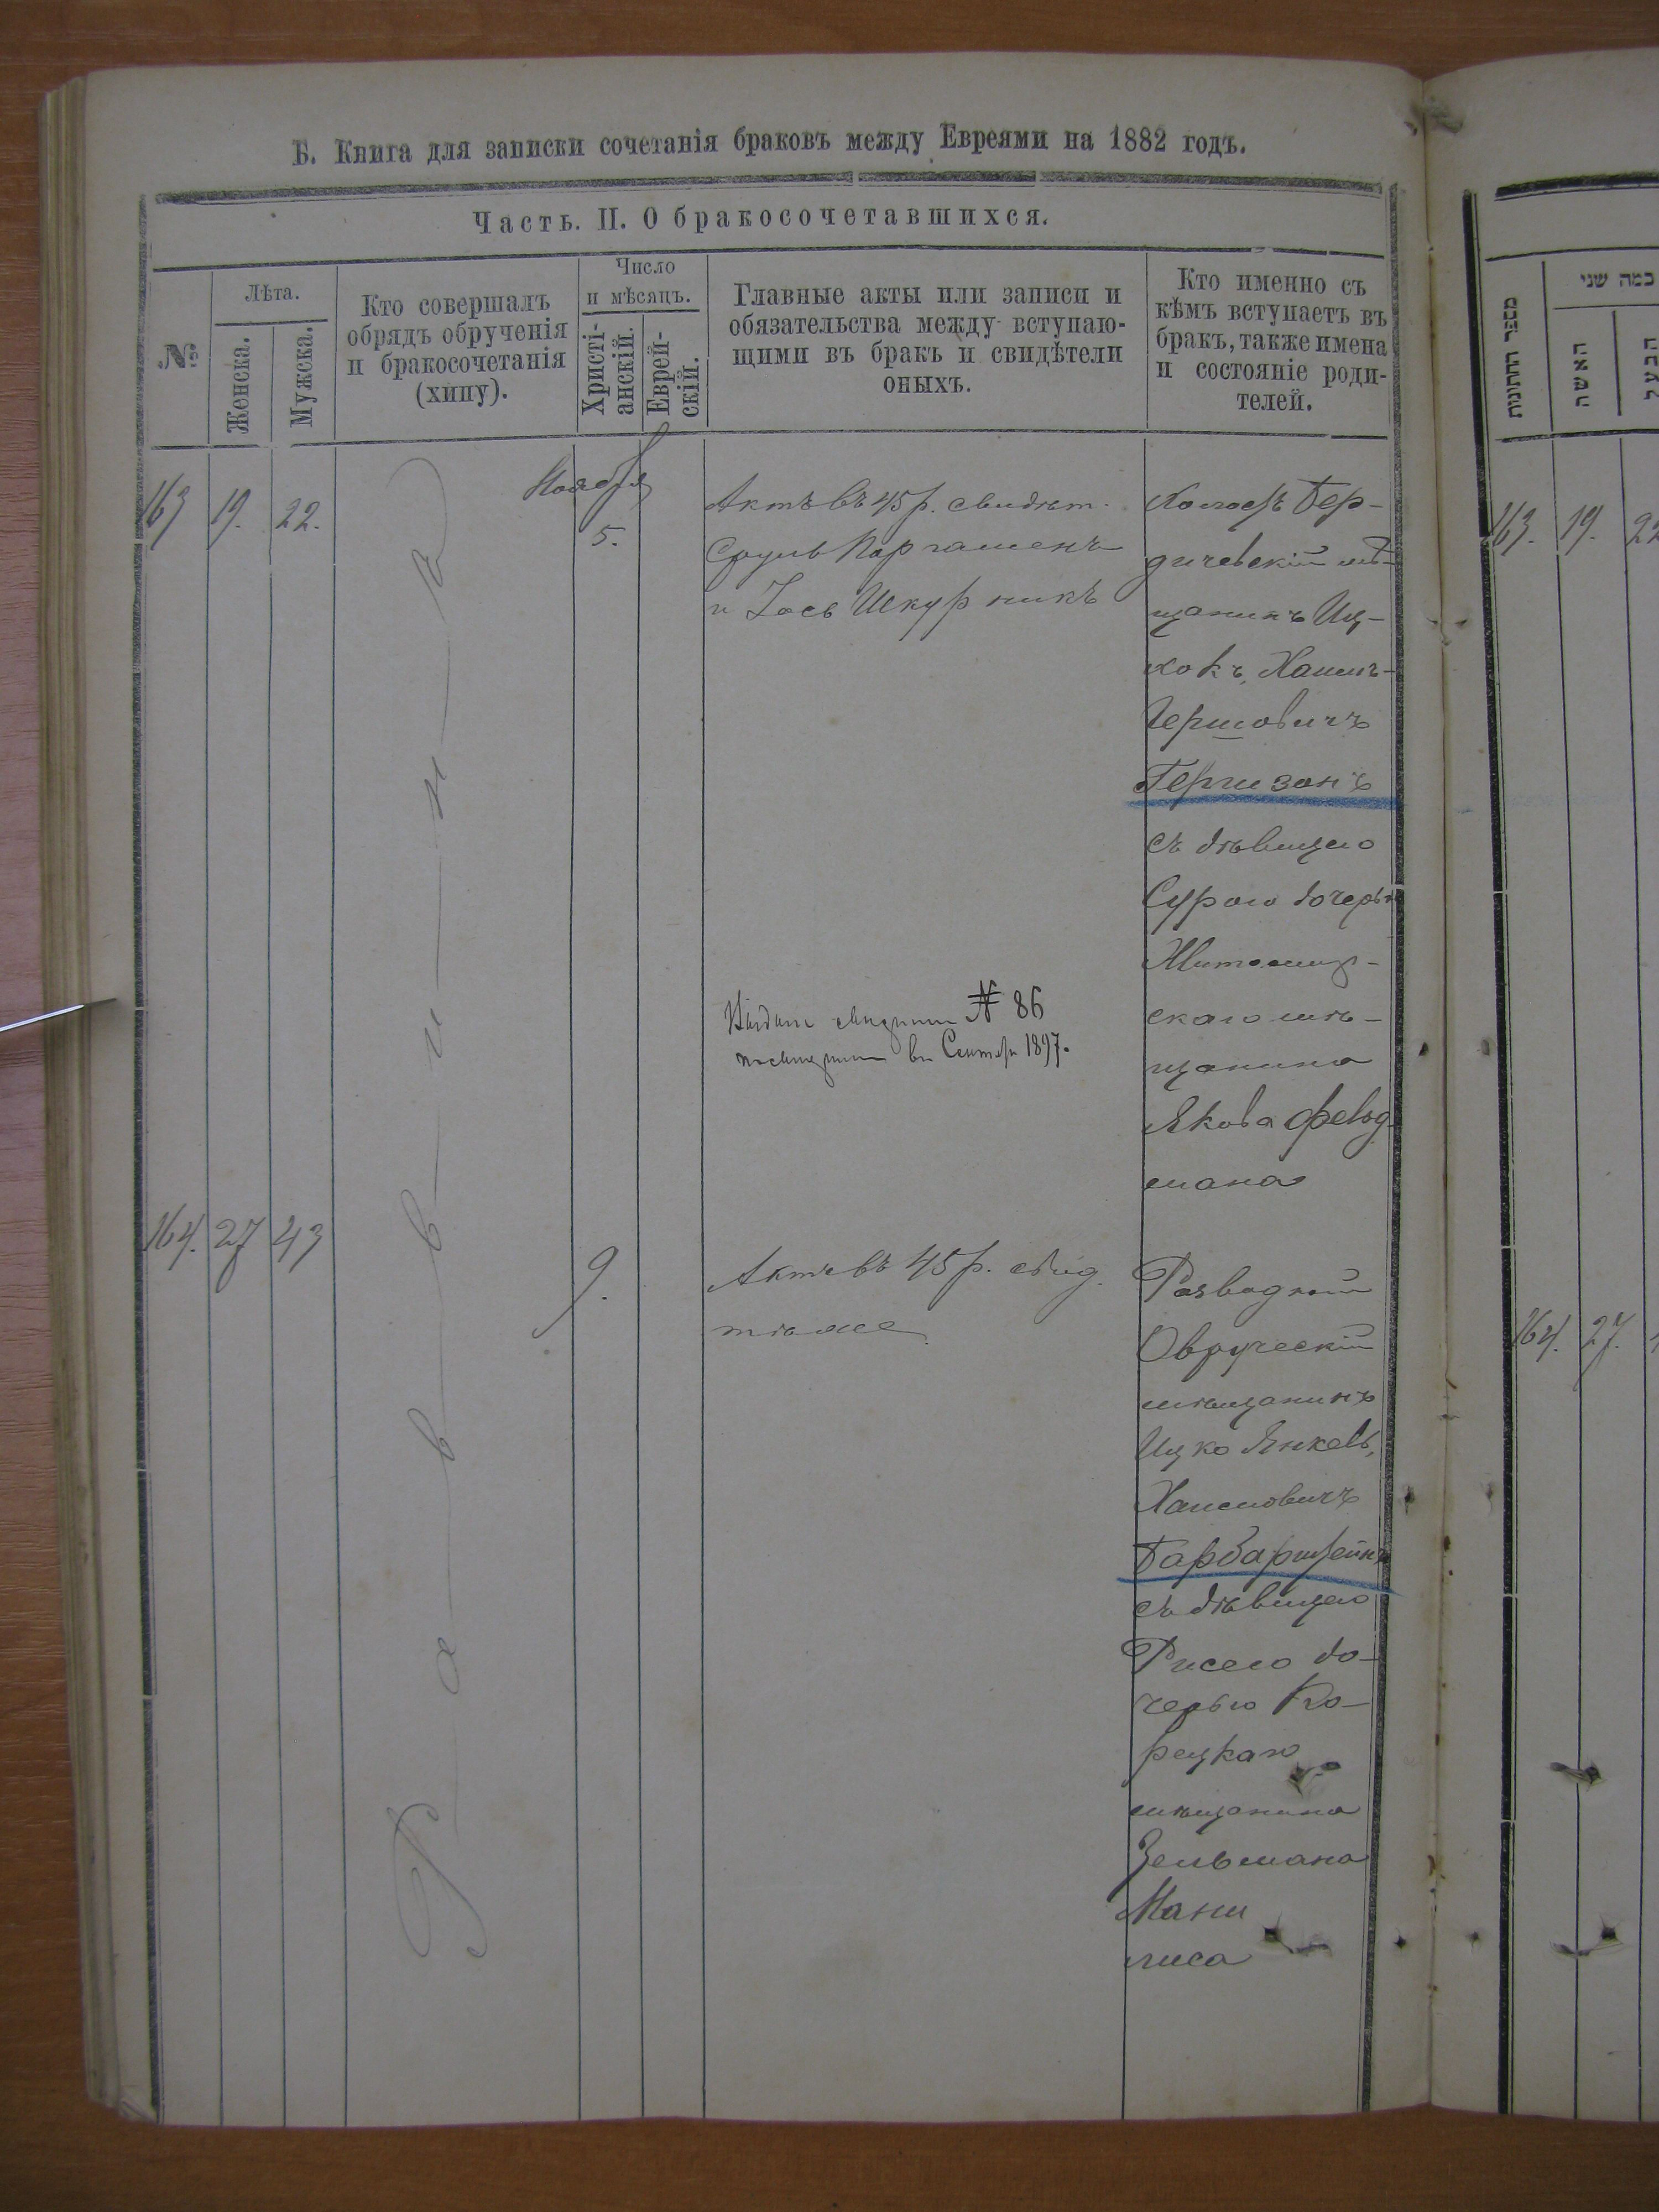 Б. Книга для записки сочетанія браковъ между Евреями на 1882 годъ.
Часть. II. О бракосочетавшихся.
№
Лѣта.
Женска.
Мужска.
Кто совершалъ
обрядъ обрученія
и бракосочетанія
(хипу).
Число
и мѣсяцъ.
Христі-
анскій.
Еврей-
скій.
Главные акты или записи и
обязательства между вступаю-
щими въ бракъ и свидѣтели
оныхъ.
Кто именно съ
кѣмъ вступаетъ въ
бракъ, также имена
и состояніе роди-
телей.
163
19.
22.
Раввинъ
Ноября
5.
Актъ въ 45 р. свидѣт.
Сруль Паргаменъ
и Іось Шкурникъ
Холосъ Бер-
дичевскій мѣ-
щанинъ Иц-
хокъ, Хаимъ-
Гершовичъ
Гершзонъ
съ дѣвицею
Сурою дочерью
Житомир-
скаго мѣ-
щанина
Якова Фельд-
мана
№ 86
въ Сентяб 1897.
164.
27
43
9.
Актъ въ 45 р. свид.
тѣже
Разводный
Овручскій
мѣщанинъ
Ицко Янкель,
Хаимовичъ
Барбарштейнъ
съ дѣвицею
Рисею до-
черью Ко-
рецкаго
мѣщанина
Зельмана
Мани
лиса
מספר החתונות
כמה שני
האשה
הבעל
163.
19.
22
164.
27.